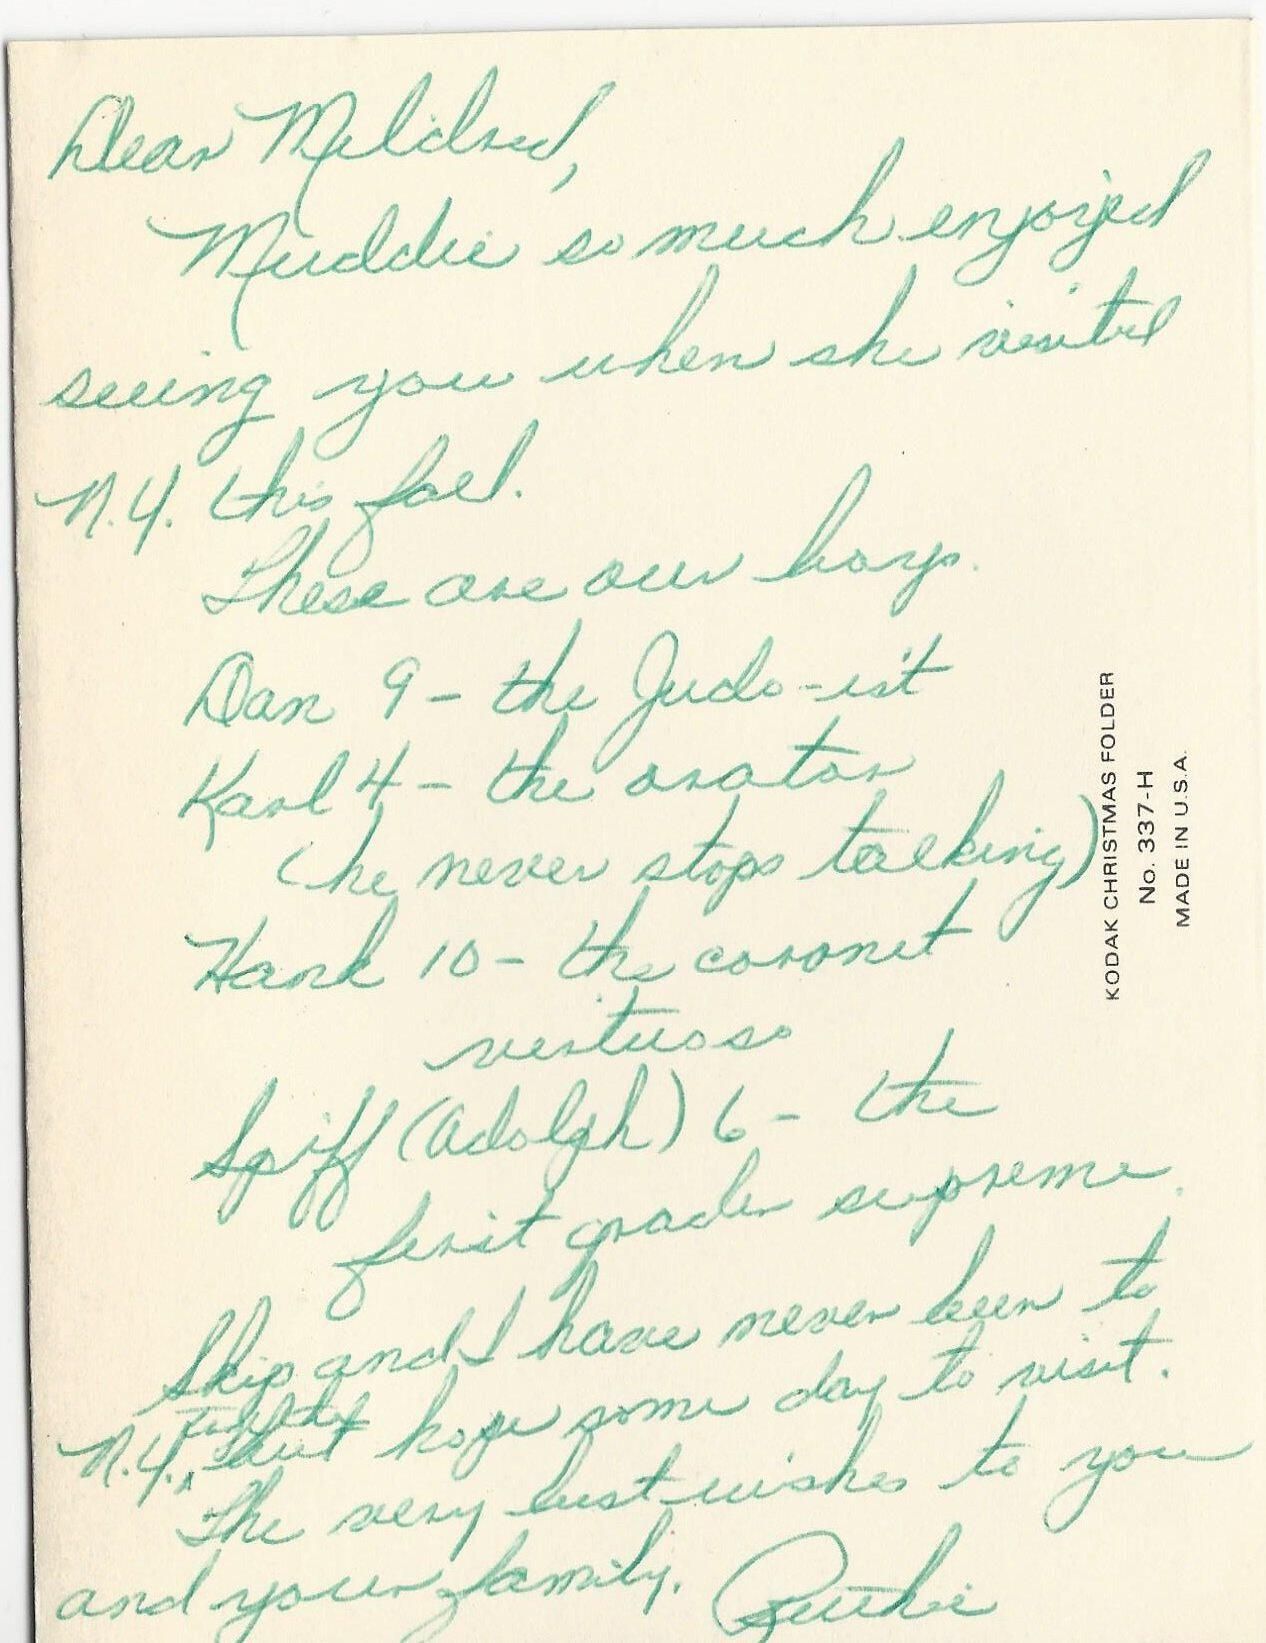 Dear Mildred,
Muddie so much enjoyed
seeing you when she visited
N.Y. this fall.
These are our boys.
Dan 9 - the Judo-ist
Karl 4 - the orator
(he never stops talking)
Hank 10 - the coronet
virtuoso
Spiff (Adolph) 6 - the
first grader supreme.
Skip and I have never been to
together
N.Y., but hope some day to visit.
The very best wishes to you
and your family. Ruthie
KODAK CHRISTMAS FOLDER
No. 337-H
MADE IN U.S.A.